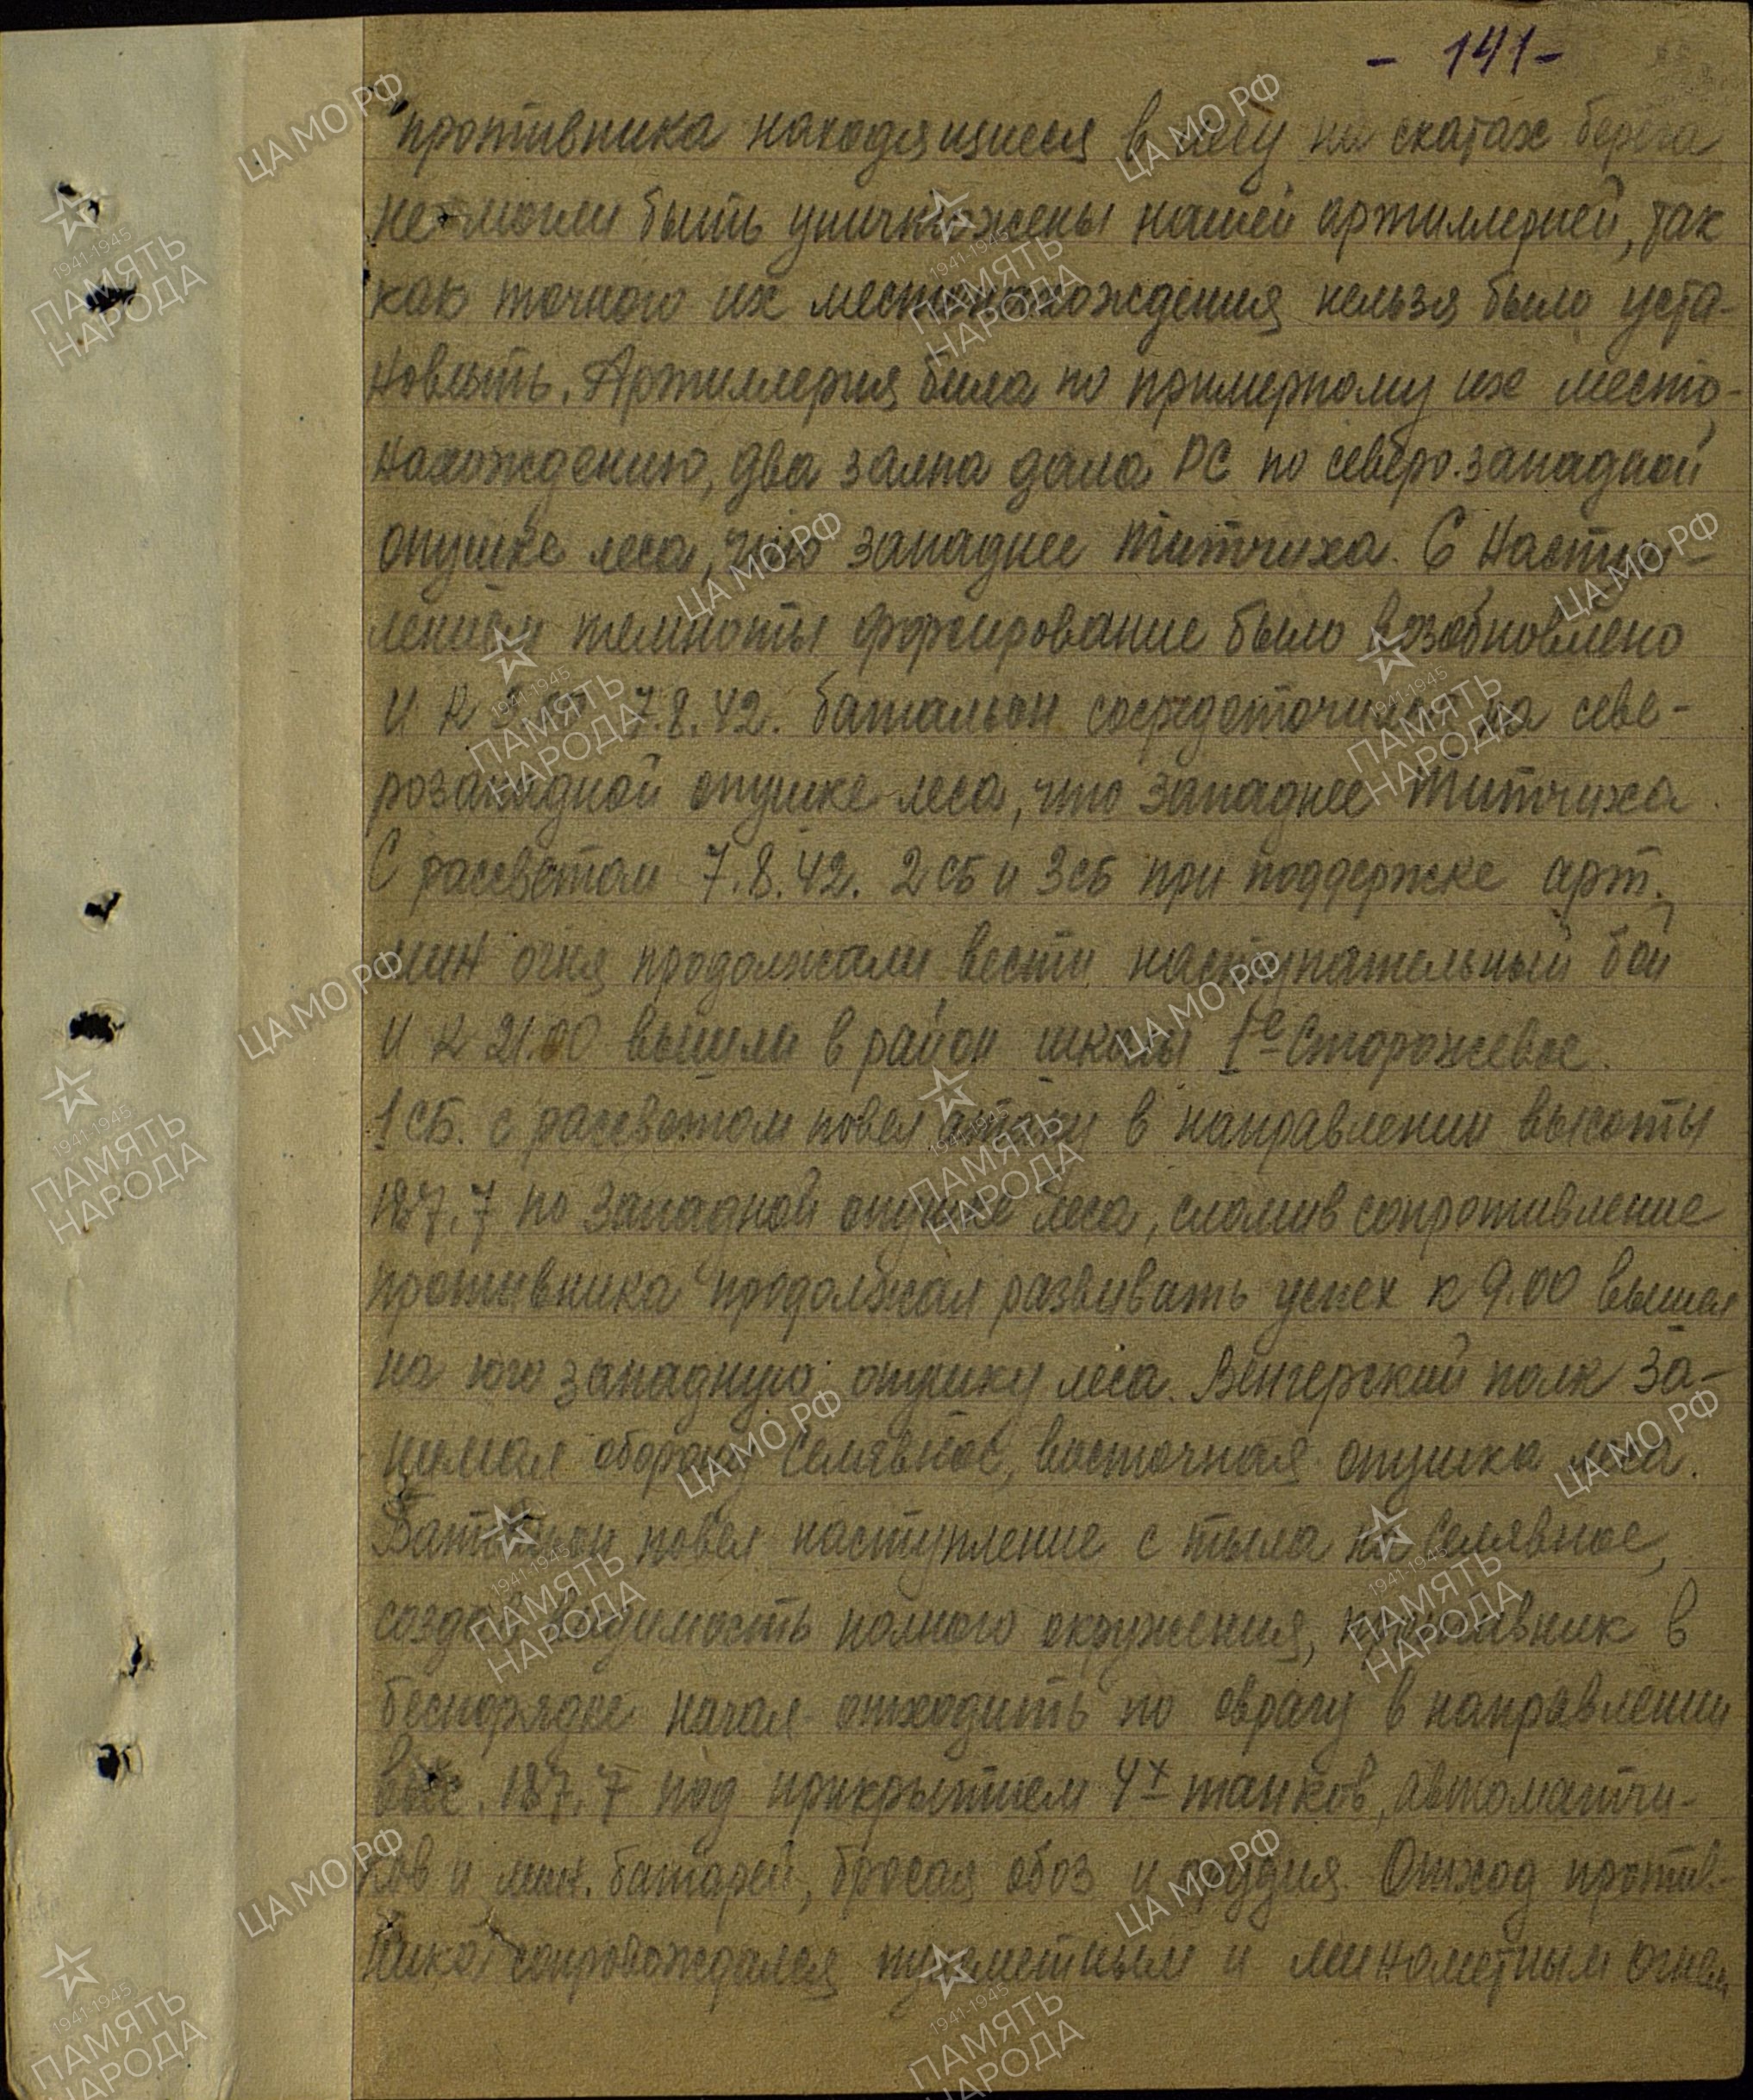 - 141 -
противника находящиеся в лесу на скатах берега
не могли быть уничтожены нашей артиллерией, так
как точного их местонахождения нельзя было уста-
новить. Артиллерия била по примерному их место-
нахождению, два залпа дала РС по северо.западной
опушке леса, что западнее Титчиха. С наступ-
лением темноты форсирование было возобновлено
и к 7.8.42. батальон сосредоточился на севе-
розападной опушке леса, что западнее Титчиха.
С рассветом 7.8.42. 2 сб и 3 сб при поддержке арт.
мин огня продолжали вести наступательный бой
и к 21.00 вышли в район школы 1е Сторожевое.
1 сб. с рассветом повел атаку в направлении высоты
187.7 по западной опушке леса, сломив сопротивление
противника продолжал развивать успех к 9.00 вышел
на юго западную опушку леса. Венгерский полк за-
нимал оборону Селявное, восточная опушка леса.
Батальон повел наступление с тыла на Селявное,
создав видимость полного окружения, противник в
беспорядке начал отходить по оврагу в направлении
выс. 187.7 под прикрытием 4х танков, автоматчи-
ков и мин. батарей, бросая обоз и орудия. Отход против-
ника сопровождался пулеметным и минометным огнем
ЦА МО РФ
1941-1945
ПАМЯТЬ
НАРОДА